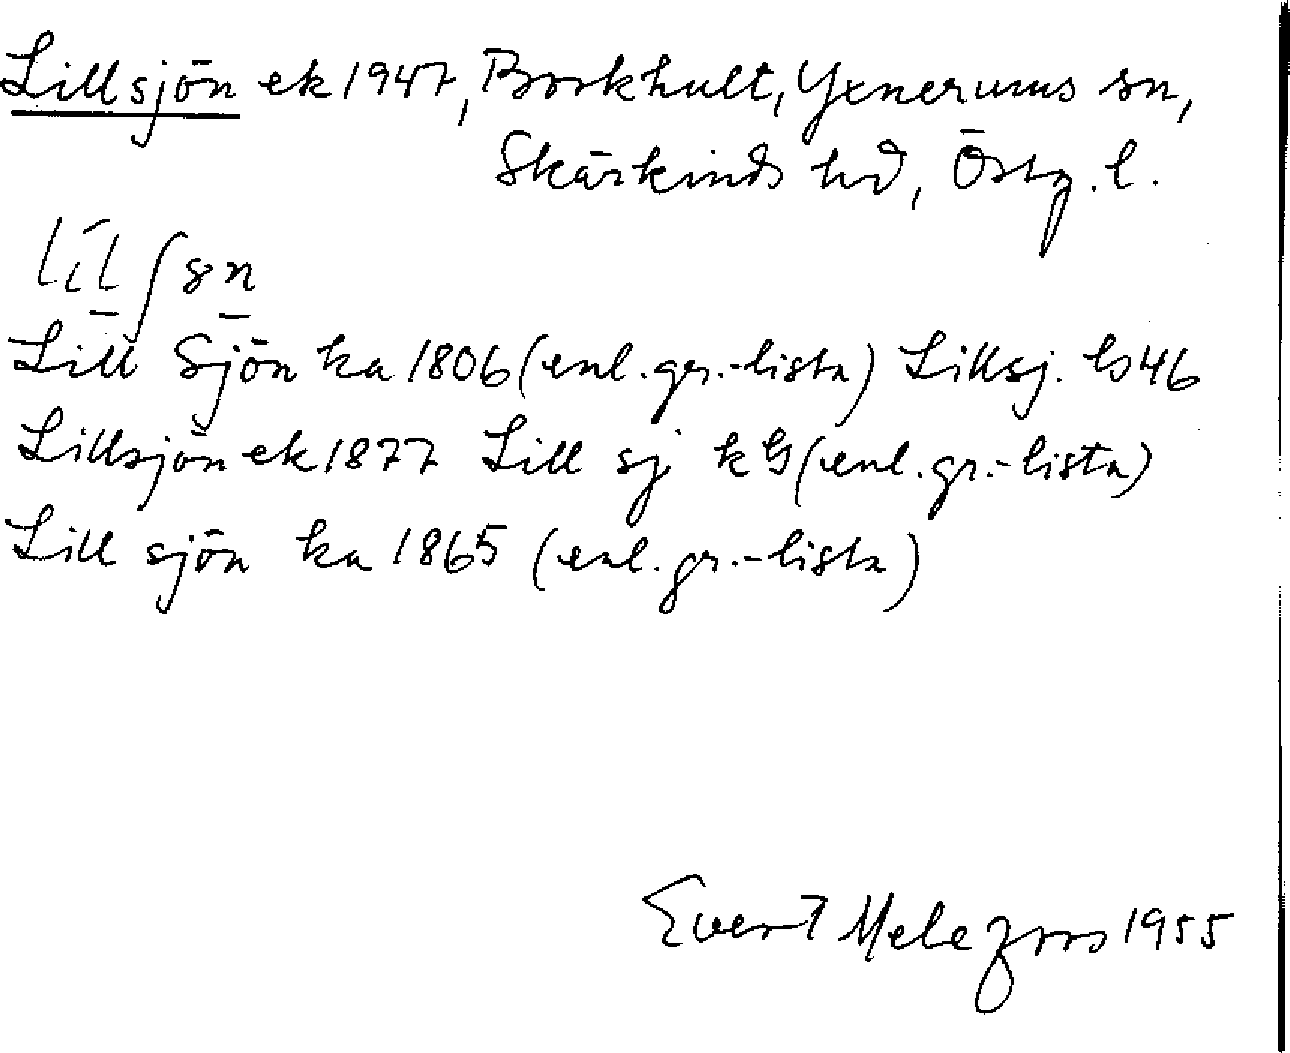 Lillsjön ek 1947, Borkhult, Yxnerums sn,
Skärkinds hd, Östg. l.
Lill Sjön ka 1806 (enl. gr.-lista) Lillsj. ls 46
Lillsjön ek 1877 Lill sj k (enl. gr.-lista)
Lill sjön ka 1865 (enl. gr.-lista)
Evert Melefors 1955